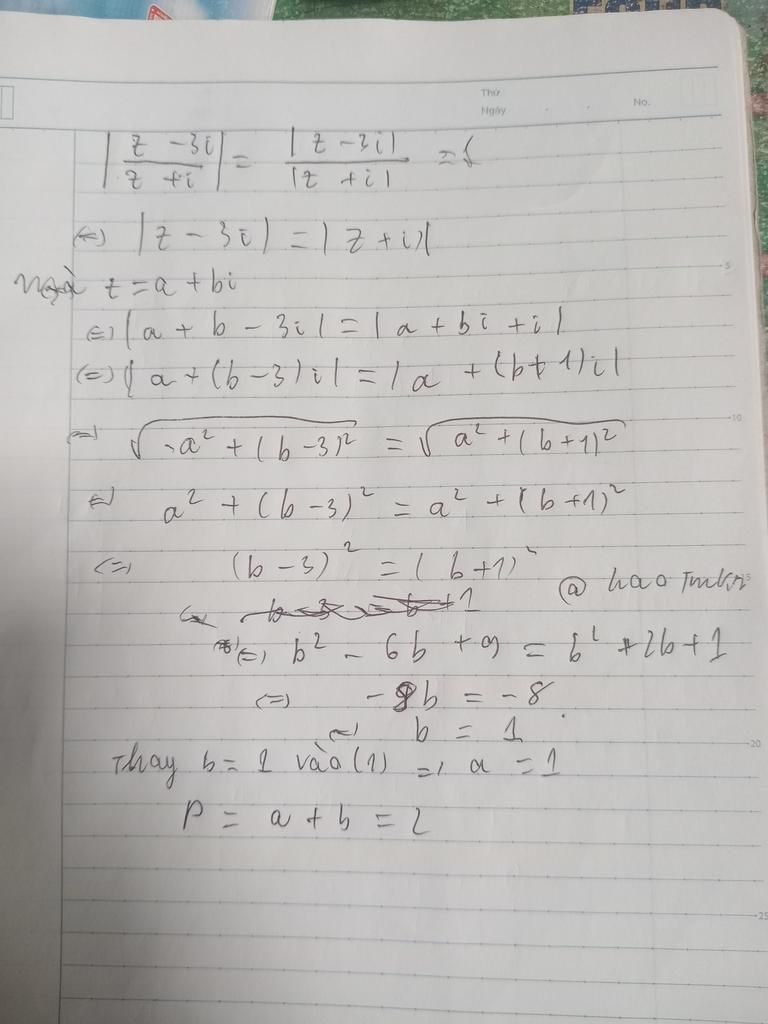 Thứ
Ngày No.
| z - 3i / z + i | = |z - 3i| / |z + i| = 1
<=> |z - 3i| = |z + i|
z = a + bi
<=> | a + b - 3i | = | a + bi + i |
<=> | a + (b - 3) i | = | a + (b + 1) i |
<=> √(a² + (b - 3)²) = √(a² + (b + 1)²)
<=> a² + (b - 3)² = a² + (b + 1)²
<=> (b - 3)² = (b + 1)²
@ hao
b - 3 = b + 1
<=> b² - 6b + 9 = b² + 2b + 1
<=> - 8b = - 8
b = 1
Thay b = 1 vào (1) => a = 1
P = a + b = 2
5
10
20
25